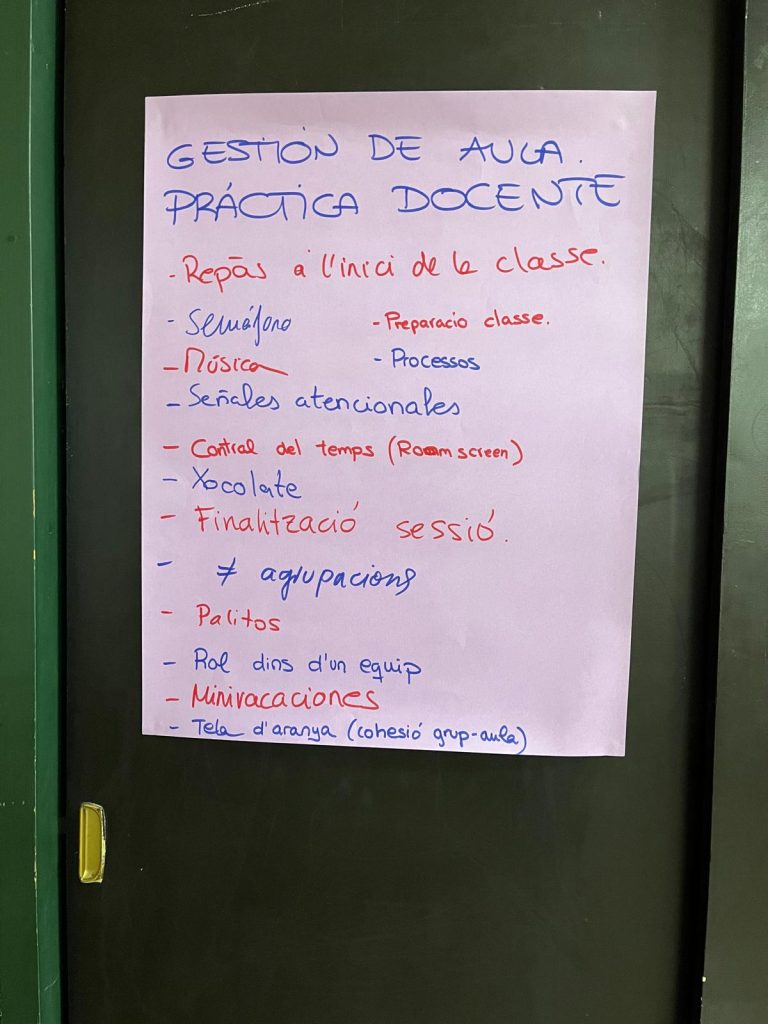 GESTIÓN DE AULA.
PRÁCTICA DOCENTE
- Repàs a l'inici de la classe.
- Semáforo
- Preparacio classe.
- Música
- Processos
- Señales atencionales
- Control del temps (Roomscreen)
- Xocolate
- Finalització sessió.
- ≠ agrupacions
- Palitos
- Rol dins d'un equip
- Minivacaciones
- Tela d'aranya (cohesió grup-aula)